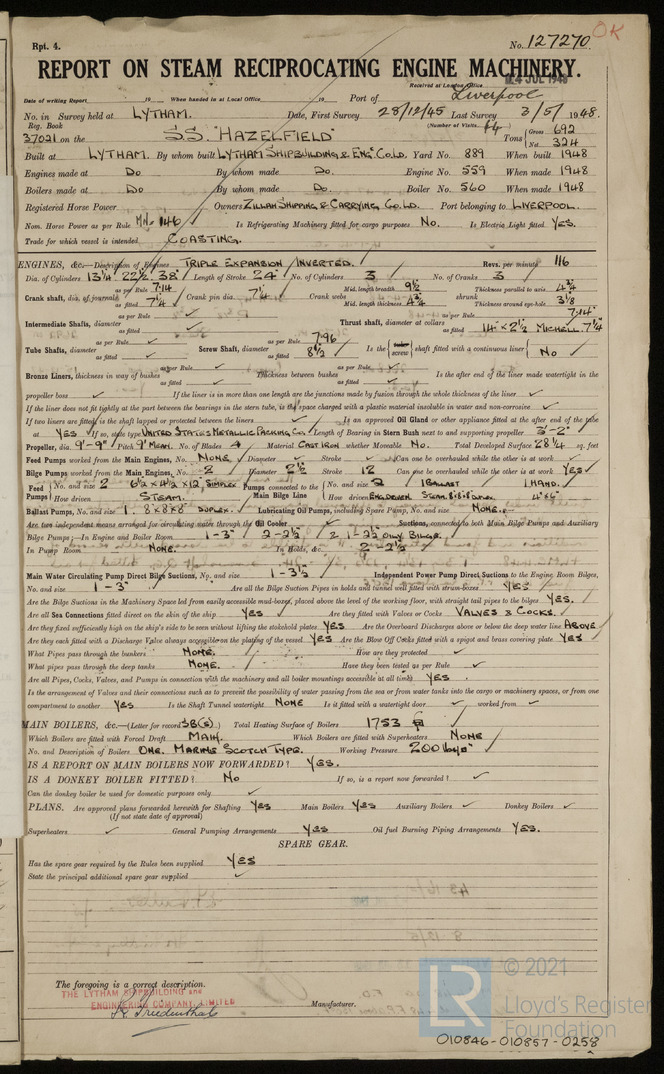 Rpt. 4.
No. 127270
OK
REPORT ON STEAM RECIPROCATING ENGINE MACHINERY.
Received at London Office 4 JUL 1948
Date of writing Report 19 When handed in at Local Office 19 Port of Liverpool
No. in Survey held at LYTHAM. Date, First Survey 28/12/45 Last Survey 3/5/1948.
Reg. Book (Number of Visits 64)
37021 on the S.S. "HAZELFIELD" Tons Gross 692 Net 324
Built at LYTHAM. By whom built LYTHAM SHIPBUILDING & ENG. CO. LD. Yard No. 889 When built 1948
Engines made at Do By whom made Do. Engine No. 559 When made 1948
Boilers made at Do By whom made Do. Boiler No. 560 When made 1948
Registered Horse Power Owners ZILLAH SHIPPING & CARRYING CO. LD. Port belonging to LIVERPOOL.
Nom. Horse Power as per Rule MN 146 Is Refrigerating Machinery fitted for cargo purposes No. Is Electric Light fitted YES.
Trade for which vessel is intended COASTING.
ENGINES, &c.—Description of Engines TRIPLE EXPANSION INVERTED. Revs. per minute 116
Dia. of Cylinders 13¼" 22½" 38" Length of Stroke 24" No. of Cylinders 3 No. of Cranks 3
Crank shaft, dia. of journals as per Rule 7.14 as fitted 7¼" Crank pin dia. 7¼" Crank webs Mid. length breadth 9½ Mid. length thickness 4¾" shrunk Thickness parallel to axis 4¾" Thickness around eye-hole 3⅛
Intermediate Shafts, diameter as per Rule ✓ as fitted ✓ Thrust shaft, diameter at collars as per Rule 7.14" as fitted 14" × 2½ MICHELL 7¼"
Tube Shafts, diameter as per Rule ✓ as fitted ✓ Screw Shaft, diameter as per Rule 7.96 as fitted 8½ Is the screw shaft fitted with a continuous liner No
Bronze Liners, thickness in way of bushes as per Rule ✓ as fitted ✓ Thickness between bushes as per Rule ✓ as fitted ✓ Is the after end of the liner made watertight in the
propeller boss ✓ If the liner is in more than one length are the junctions made by fusion through the whole thickness of the liner ✓
If the liner does not fit tightly at the part between the bearings in the stern tube, is the space charged with a plastic material insoluble in water and non-corrosive ✓
If two liners are fitted, is the shaft lapped or protected between the liners ✓ Is an approved Oil Gland or other appliance fitted at the after end of the tube
at YES If so, state type UNITED STATES METALLIC PACKING CO. Length of Bearing in Stern Bush next to and supporting propeller 3'-2"
Propeller, dia. 9'-9" Pitch 9' MEAN. No. of Blades 4 Material CAST IRON whether Moveable No. Total Developed Surface 28¼ sq. feet
Feed Pumps worked from the Main Engines, No. NONE Diameter ✓ Stroke ✓ Can one be overhauled while the other is at work ✓
Bilge Pumps worked from the Main Engines, No. 2 Diameter 2½ Stroke 12 Can one be overhauled while the other is at work YES
Feed Pumps No. and size 2 6½ × 4½ × 12" SIMPLEX How driven STEAM. Pumps connected to the Main Bilge Line No. and size 2 1 BALLAST 1 HAND. How driven ENG. DRIVEN STEAM 8"×8"×8" DUPLEX 4"×6"
Ballast Pumps, No. and size 1. 8×8×8 DUPLEX. Lubricating Oil Pumps, including Spare Pump, No. and size NONE.
Are two independent means arranged for circulating water through the Oil Cooler Suctions, connected to both Main Bilge Pumps and Auxiliary
Bilge Pumps;—In Engine and Boiler Room 1-3" 2-2½" 2 1-2½ ONLY BILGE.
In Pump Room NONE. In Holds, &c. 2-2½
Main Water Circulating Pump Direct Bilge Suctions, No. and size 1-3½" Independent Power Pump Direct Suctions to the Engine Room Bilges,
No. and size 1-3" Are all the Bilge Suction Pipes in holds and tunnel well fitted with strum-boxes YES
Are the Bilge Suctions in the Machinery Space led from easily accessible mud-boxes, placed above the level of the working floor, with straight tail pipes to the bilges YES.
Are all Sea Connections fitted direct on the skin of the ship YES Are they fitted with Valves or Cocks VALVES & COCKS.
Are they fixed sufficiently high on the ship's side to be seen without lifting the stokehold plates YES Are the Overboard Discharges above or below the deep water line ABOVE
Are they each fitted with a Discharge Valve always accessible on the plating of the vessel YES Are the Blow Off Cocks fitted with a spigot and brass covering plate YES
What Pipes pass through the bunkers NONE. How are they protected ✓
What pipes pass through the deep tanks NONE. Have they been tested as per Rule ✓
Are all Pipes, Cocks, Valves, and Pumps in connection with the machinery and all boiler mountings accessible at all times YES
Is the arrangement of Valves and their connections such as to prevent the possibility of water passing from the sea or from water tanks into the cargo or machinery spaces, or from one
compartment to another YES Is the Shaft Tunnel watertight NONE Is it fitted with a watertight door ✓ worked from ✓
MAIN BOILERS, &c.—(Letter for record 3B(S)) Total Heating Surface of Boilers 1753
Which Boilers are fitted with Forced Draft MAIN. Which Boilers are fitted with Superheaters NONE
No. and Description of Boilers ONE. MARINE SCOTCH TYPE. Working Pressure 200 lbs/□"
IS A REPORT ON MAIN BOILERS NOW FORWARDED? YES.
IS A DONKEY BOILER FITTED? No If so, is a report now forwarded? ✓
Can the donkey boiler be used for domestic purposes only ✓
PLANS. Are approved plans forwarded herewith for Shafting YES Main Boilers YES Auxiliary Boilers ✓ Donkey Boilers ✓
(If not state date of approval)
Superheaters ✓ General Pumping Arrangements YES Oil fuel Burning Piping Arrangements YES.
SPARE GEAR.
Has the spare gear required by the Rules been supplied YES
State the principal additional spare gear supplied ✓
The foregoing is a correct description.
THE LYTHAM SHIPBUILDING and
ENGINEERING COMPANY, LIMITED
Manufacturer.
LR © 2021
Lloyd's Register
Foundation
010846-010857-0258